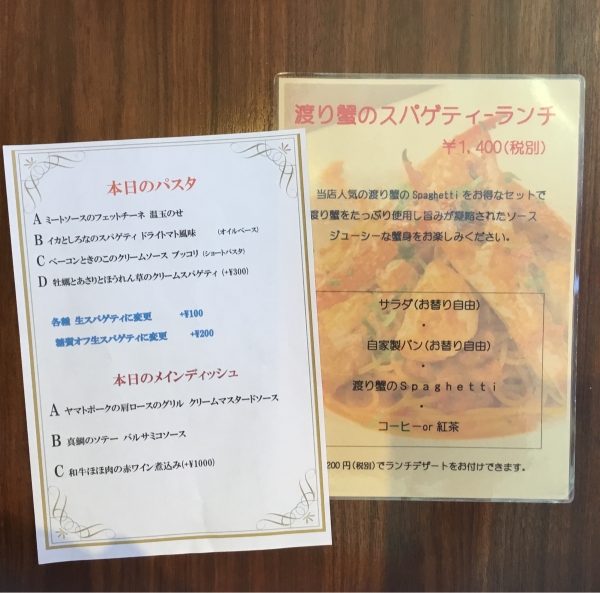 本日のパスタ
A ミートソースのフェットチーネ 温玉のせ
B イカとしろなのスパゲティ ドライトマト風味 (オイルベース)
C ベーコンときのこのクリームソース ブッコリ (ショートパスタ)
D 牡蠣とあさりとほうれん草のクリームスパゲティ (+¥300)
各種 生スパゲティに変更 +¥100
糖質オフ生スパゲティに変更 +¥200
本日のメインディッシュ
A ヤマトポークの肩ロースのグリル クリームマスタードソース
B 真鯛のソテー バルサミコソース
C 和牛ほほ肉の赤ワイン煮込み(+¥1000)
渡り蟹のスパゲティーランチ
¥1,400(税別)
当店人気の渡り蟹のSpaghettiをお得なセットで
渡り蟹をたっぷり使用し旨みが凝縮されたソース
ジューシーな蟹身をお楽しみください。
サラダ(お替り自由)
・
自家製パン(お替り自由)
・
渡り蟹のSpaghetti
・
コーヒーor紅茶
200円(税別)でランチデザートをお付けできます。